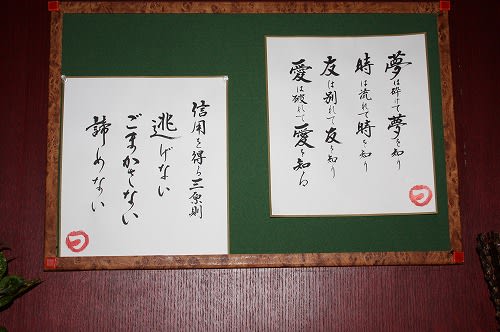 夢は砕けて夢を知り
時は流れて時を知り
友は別れて友を知り
愛は破れて愛を知る
信用を得る三原則
逃げない
ごまかさない
諦めない